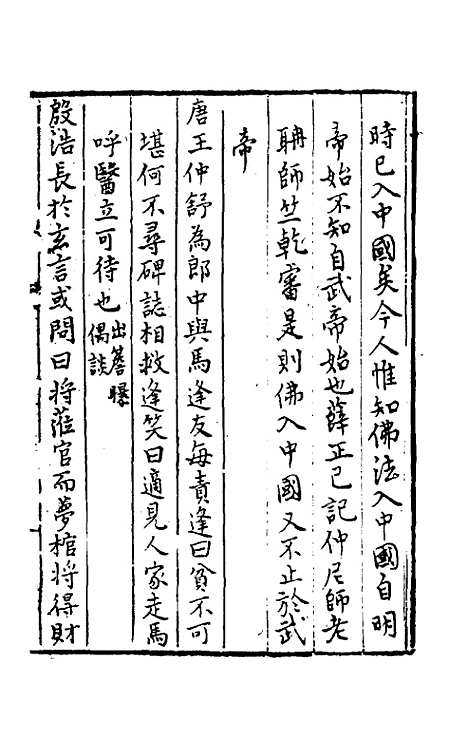 時已入中國矣今人惟知佛法入中國自明
帝始不知自武帝始也薛正己記仲尼師老
聃師竺乾審是則佛入中國又不止於武
帝
唐王仲舒為郎中與馬逢友每責逢曰貧不可
堪何不尋碑誌相救逢笑曰適見人家走馬
呼醫立可待也出簷曝偶談
殷浩長於玄言或問曰將蒞官而夢棺將得財